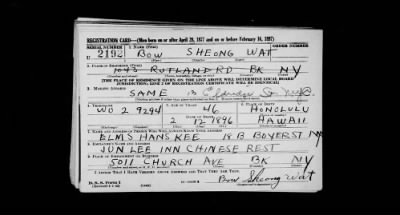 REGISTRATION CARD—(Men born on or after April 28, 1877 and on or before February 16, 1897)
SERIAL NUMBER 1. NAME (Print) ORDER NUMBER
U 2192 BOW SHEONG WAT
2. PLACE OF RESIDENCE (Print)
1043 RUTLAND RD BK NY
[THE PLACE OF RESIDENCE GIVEN ON THE LINE ABOVE WILL DETERMINE LOCAL BOARD
JURISDICTION; LINE 2 OF REGISTRATION CERTIFICATE WILL BE IDENTICAL]
3. MAILING ADDRESS
SAME 13 Eldridge St NYC
4. TELEPHONE 5. AGE IN YEARS 6. PLACE OF BIRTH
WO 2 9294 46 HONOLULU
DATE OF BIRTH
2 12 1896 HAWAII
7. NAME AND ADDRESS OF PERSON WHO WILL ALWAYS KNOW YOUR ADDRESS
ELMS HANS KEE 18 B BOYER ST NY
8. EMPLOYER'S NAME AND ADDRESS
JUN LEE INN CHINESE REST
9. PLACE OF EMPLOYMENT OR BUSINESS
5011 CHURCH AVE BK NY
I AFFIRM THAT I HAVE VERIFIED ABOVE ANSWERS AND THAT THEY ARE TRUE.
D. S. S. Form 1 Bow Sheong Wat